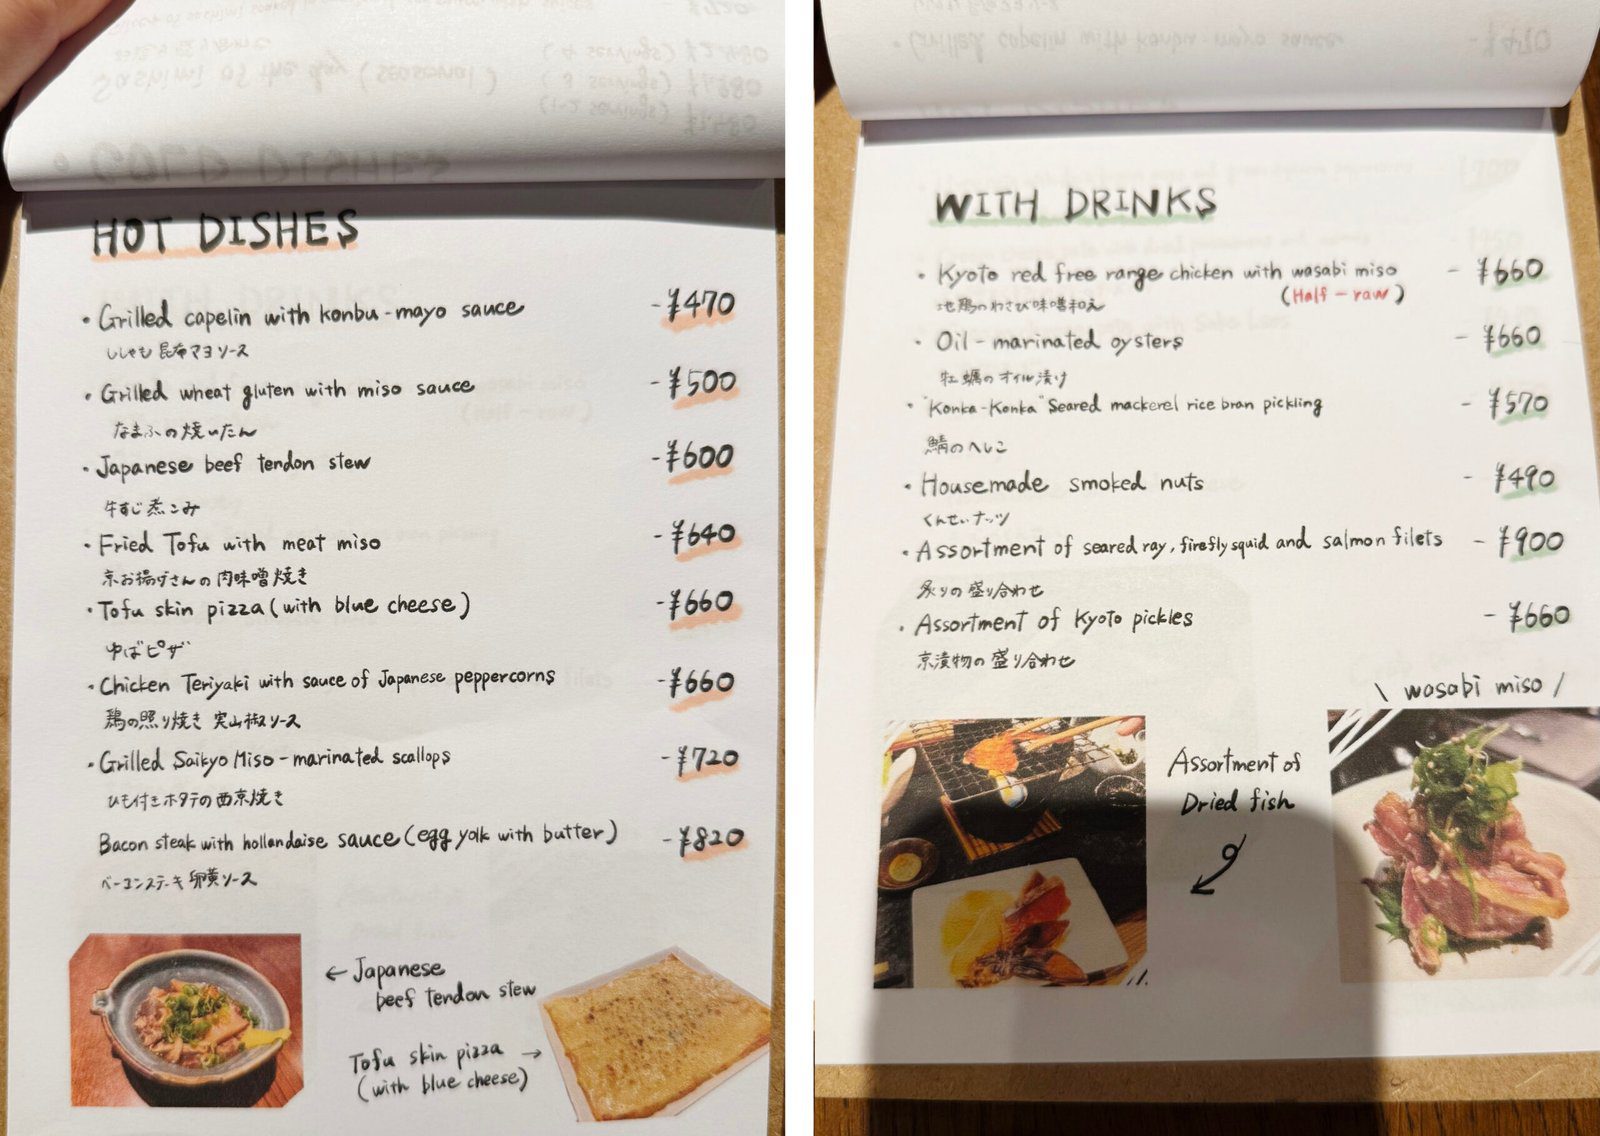 HOT DISHES
・Grilled capelin with konbu-mayo sauce -¥470
ししゃも 昆布マヨソース
・Grilled wheat gluten with miso sauce -¥500
なまふの焼いたん
・Japanese beef tendon stew -¥600
牛すじ煮こみ
・Fried Tofu with meat miso -¥640
京お揚げさんの肉味噌焼き
・Tofu skin pizza (with blue cheese) -¥660
ゆばピザ
・Chicken Teriyaki with sauce of Japanese peppercorns -¥660
鶏の照り焼き 実山椒ソース
・Grilled Saikyo Miso-marinated scallops -¥720
ひも付きホタテの西京焼き
Bacon steak with hollandaise sauce (egg yolk with butter) -¥820
ベーコンステーキ 卵黄ソース
← Japanese
beef tendon stew
Tofu skin pizza →
(with blue cheese)
WITH DRINKS
・Kyoto red free range chicken with wasabi miso - ¥660
(Half-raw)
地鶏のわさび味噌和え
・Oil-marinated oysters - ¥660
牡蠣のオイル漬け
・"Konka-Konka" Seared mackerel rice bran pickling - ¥570
鯖のへしこ
・Housemade smoked nuts - ¥490
くんせいナッツ
・Assortment of seared ray, firefly squid and salmon filets - ¥900
炙りの盛り合わせ
・Assortment of Kyoto pickles - ¥660
京漬物の盛り合わせ
\ wasabi miso /
Assortment of
Dried fish